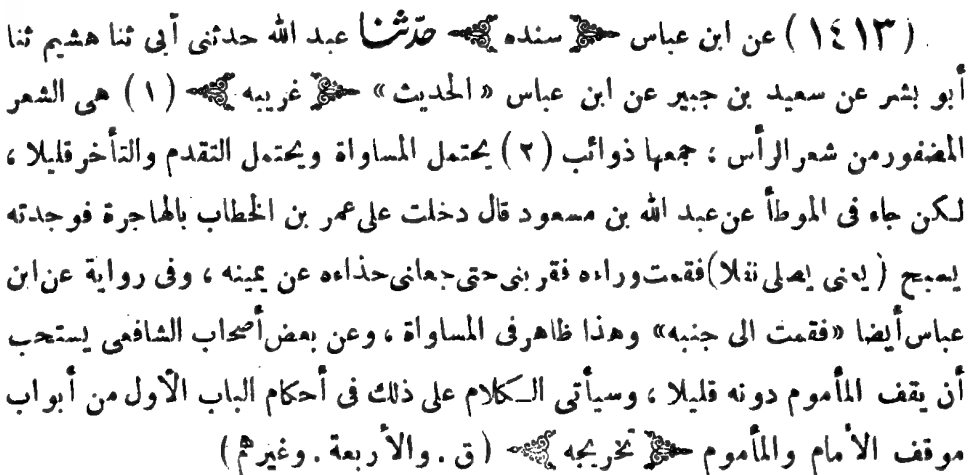 ( ١٤١٣ ) عن ابن عباس سنده حدّثنا عبد الله حدثنى أبى ثنا هشيم ثنا
أبو بشر عن سعيد بن جبير عن ابن عباس « الحديث » غريبه ( ١ ) هى الشعر
المضفور من شعر الرأس ، جمعها ذوائب ( ٢ ) يحتمل المساواة ويحتمل التقدم والتأخر قليلا ،
لكن جاء فى الموطأ عن عبد الله بن مسعود قال دخلت على عمر بن الخطاب بالهاجرة فوجدته
يسبح ( يعنى يصلى نفلا ) فقمت وراءه فقربنى حتى جعلنى حذاءه عن يمينه ، وفى رواية عن ابن
عباس أيضا «فقمت الى جنبه» وهذا ظاهر فى المساواة ، وعن بعض أصحاب الشافعى يستحب
أن يقف المأموم دونه قليلا ، وسيأتى الكلام على ذلك فى أحكام الباب الأول من أبواب
موقف الأمام والمأموم تخريجه ( ق . والأربعة . وغيرهم )